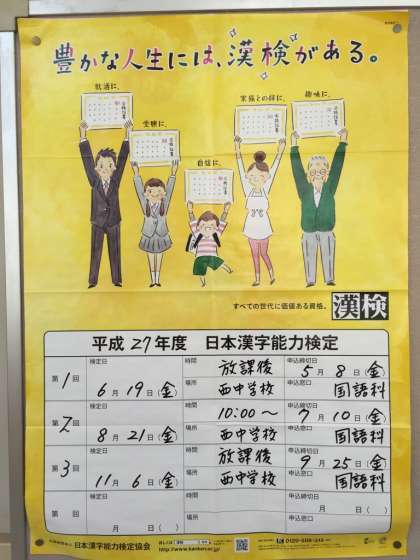 豊かな人生には、漢検がある。
就活に、
受験に、
自信に、
家族との絆に、
趣味に、
合格証書
合格証書
合格証書
合格証書
合格証書
すべての世代に価値ある資格。
漢検
平成27年度 日本漢字能力検定
第1回
検定日
6月19日(金)
時間
放課後
場所
西中学校
申込締切日
5月8日(金)
申込窓口
国語科
第2回
検定日
8月21日(金)
時間
10:00〜
場所
西中学校
申込締切日
7月10日(金)
申込窓口
国語科
第3回
検定日
11月6日(金)
時間
放課後
場所
西中学校
申込締切日
9月25日(金)
申込窓口
国語科
第 回
検定日
月 日( )
時間
場所
申込締切日
月 日( )
申込窓口
日本漢字能力検定協会
http://www.kanken.or.jp/